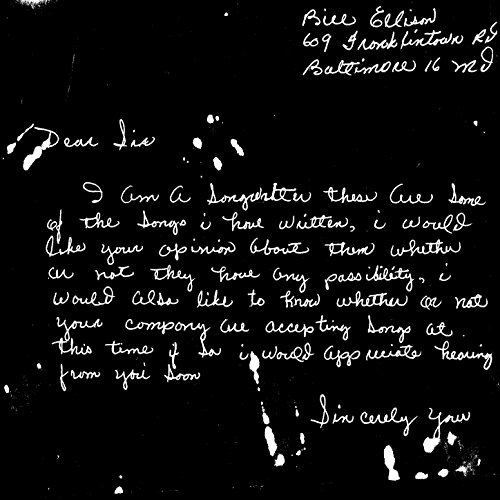 Bill Ellison
609 Franklintown Rd
Baltimore 16 Md
Dear Sir
I am a Songwritter these are some
of the songs i have written, i would
like your opinion about them whether
or not they have any passibility, i
would also like to know whether or not
your company are accepting songs at
this time if so i would appreciate hearing
from you soon
Sincerely Your